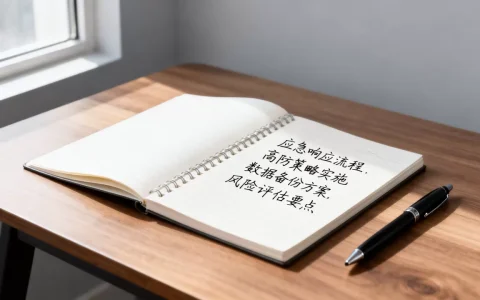 应急响应流程.
高防策略实施
数据备份方案.
风险评估要点